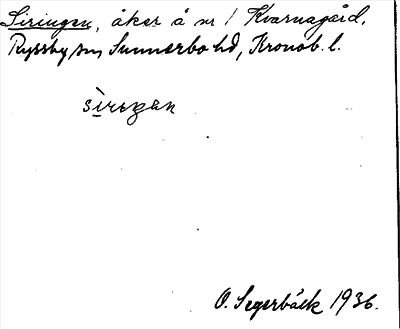 Siringen, åker å nr 1 Kvarnagård,
Ryssby sn Sunnerbo hd, Kronob. l.
sìreŋen
O. Segerbäck 1936.